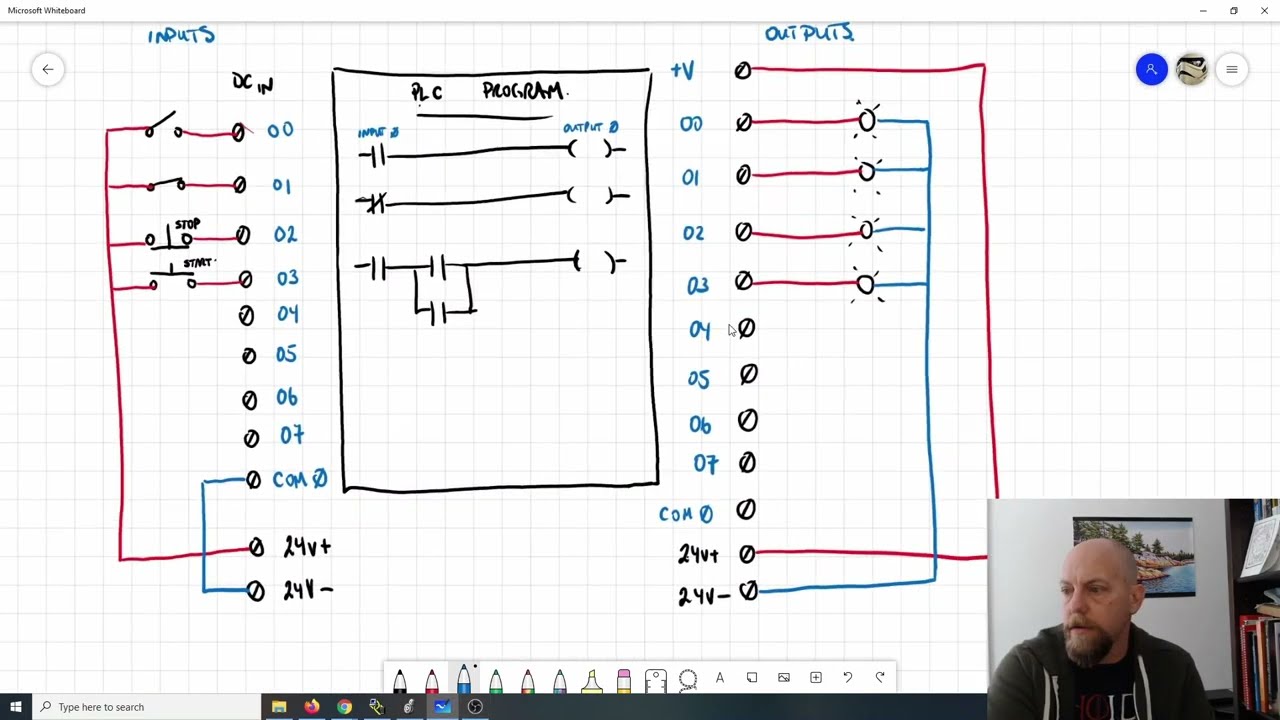 Microsoft Whiteboard
INPUTS
DC IN
00
01
STOP
02
START
03
04
05
06
07
COM 0
24V+
24V-
PLC PROGRAM.
INPUT 0
OUTPUT 0
OUTPUTS
+V
00
01
02
03
04
05
06
07
COM 0
24V+
24V-
A
Type here to search